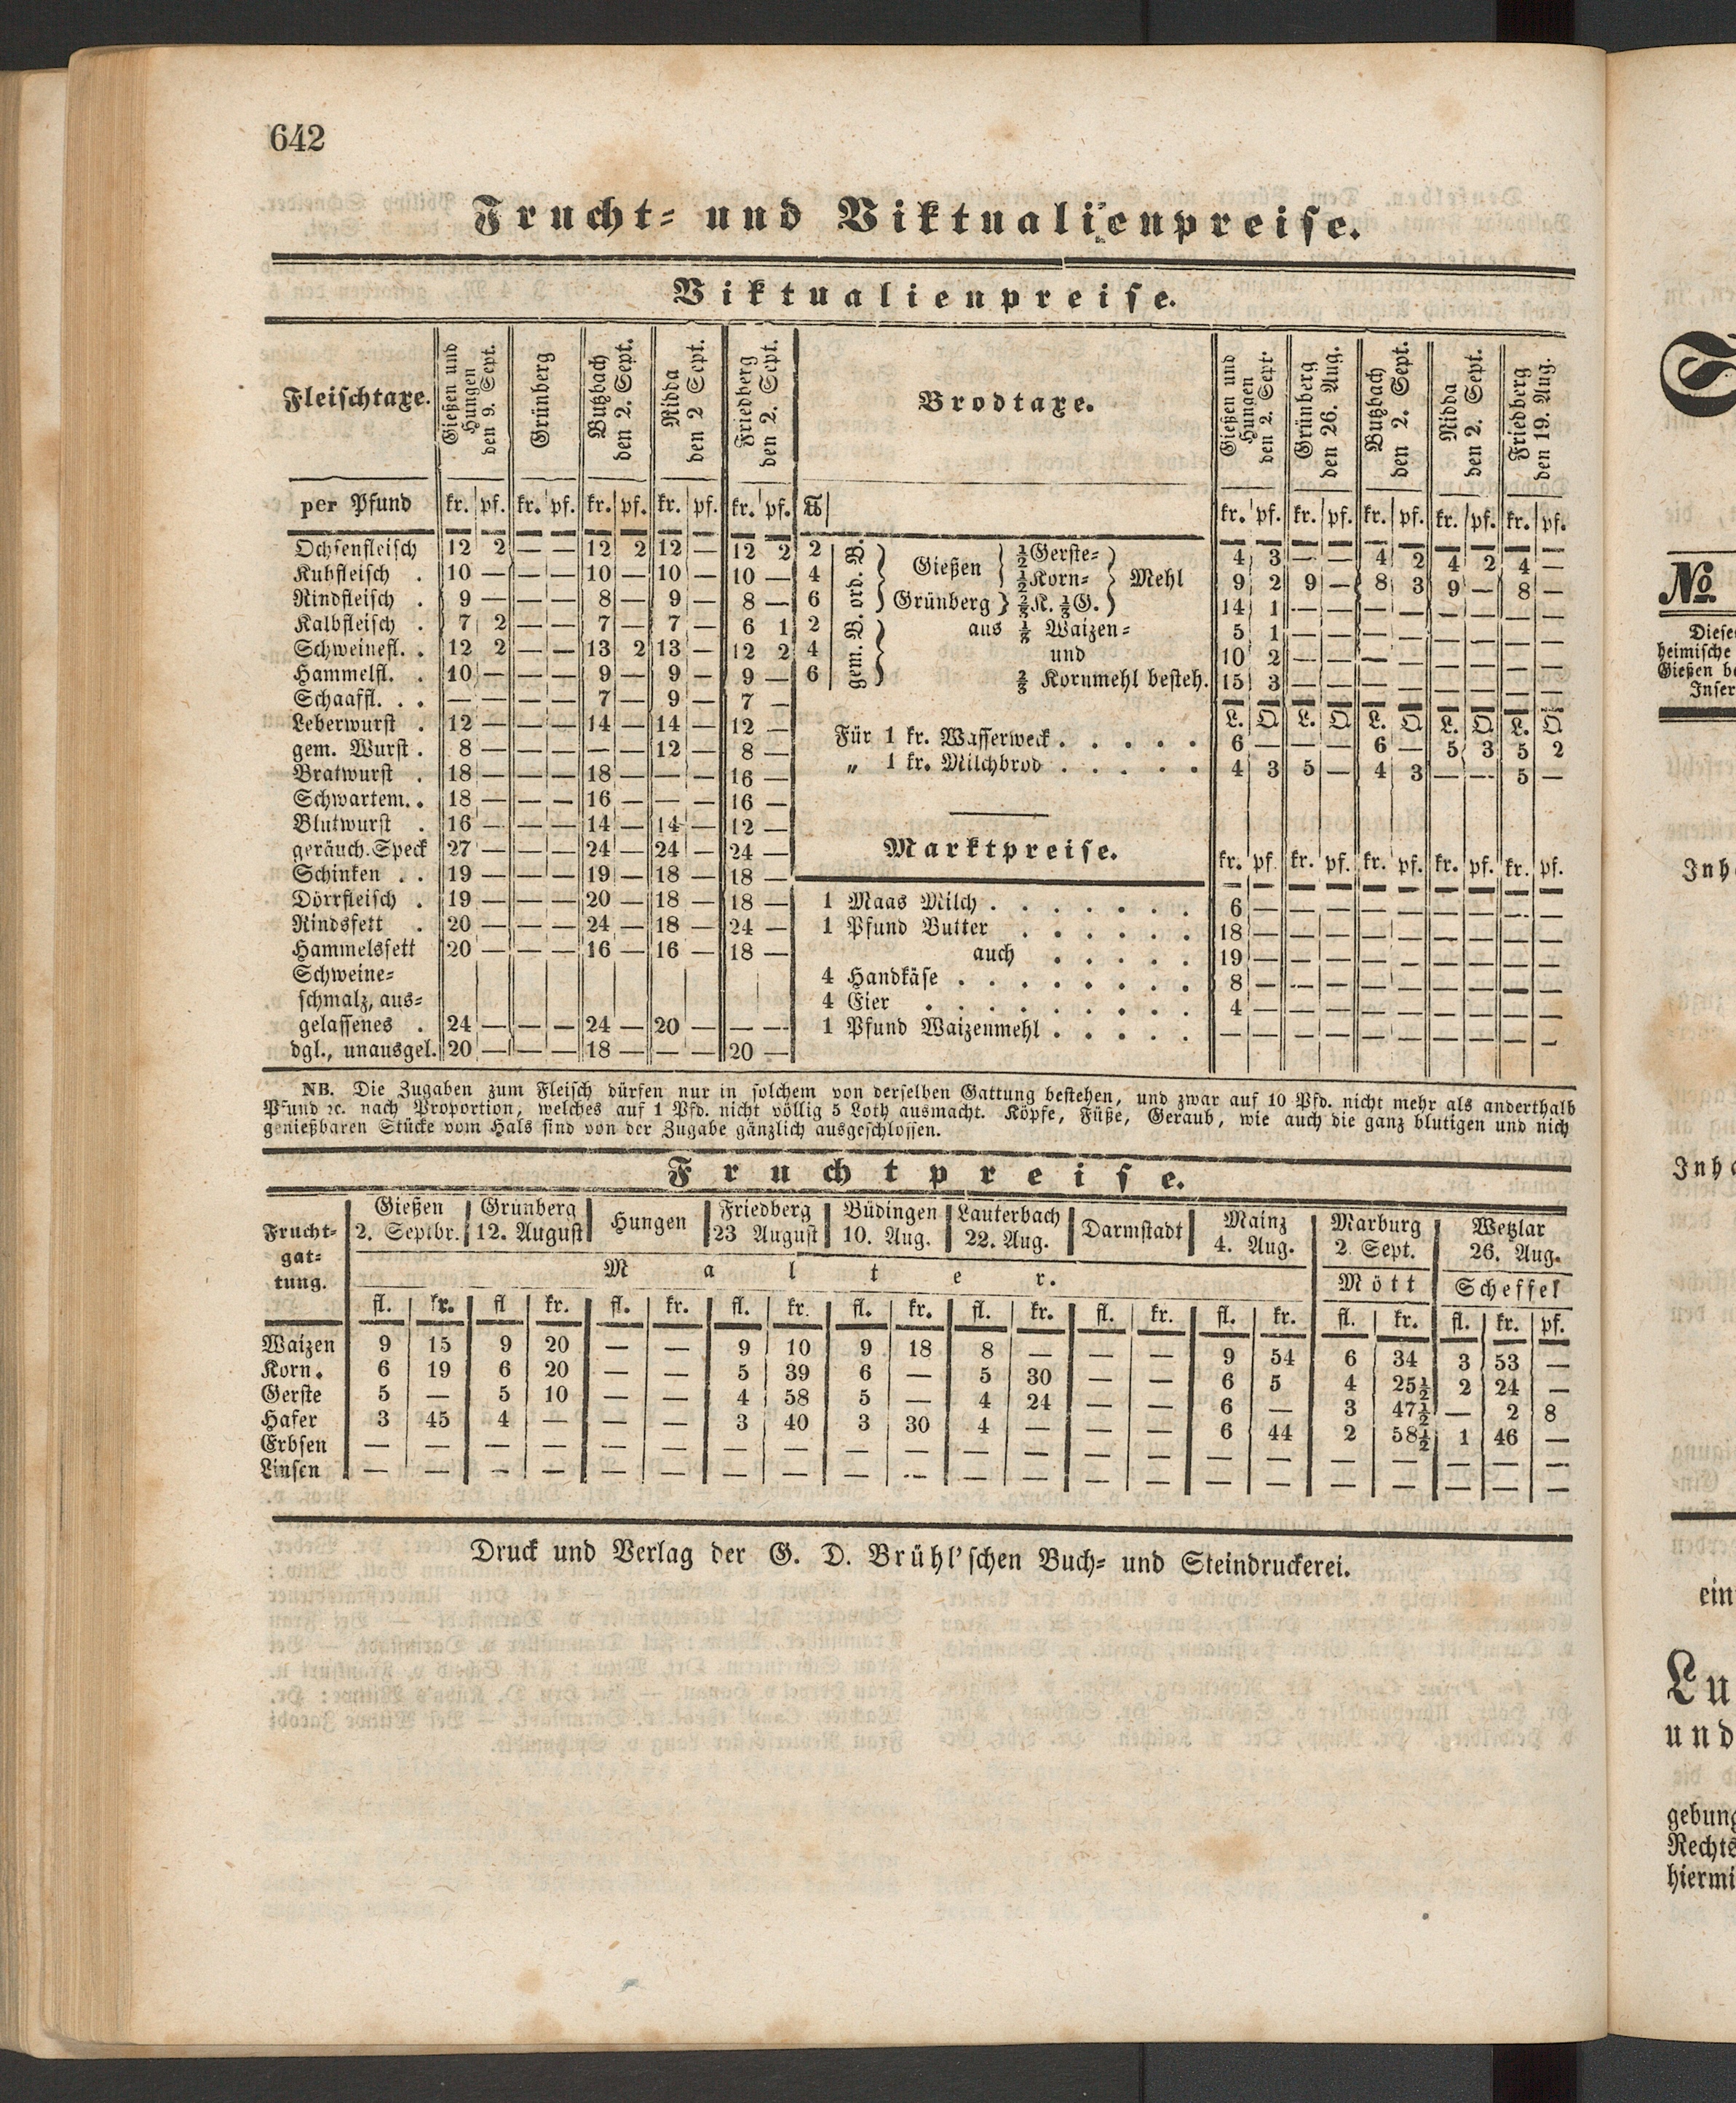 642
Frucht- und Viktualienpreise.
Viktualienpreise.
Fleischtaxe. | Gießen und Hungen den 9. Sept. | Grünberg | Butzbach den 2. Sept. | Nidda den 2 Sept. | Friedberg den 2. Sept.
per Pfund | kr. pf. | kr. pf. | kr. pf. | kr. pf. | kr. pf.
Ochsenfleisch | 12 2 | — — | 12 2 | 12 — | 12 2
Kuhfleisch . | 10 — | — — | 10 — | 10 — | 10 —
Rindfleisch . | 9 — | — — | 8 — | 9 — | 8 —
Kalbfleisch . | 7 2 | — — | 7 — | 7 — | 6 1
Schweinefl. . | 12 2 | — — | 13 2 | 13 — | 12 2
Hammelfl. . | 10 — | — — | 9 — | 9 — | 9 —
Schaaffl. . . | — — | — — | 7 — | 9 — | 7 —
Leberwurst . | 12 — | — — | 14 — | 14 — | 12 —
gem. Wurst . | 8 — | — — | — — | 12 — | 8 —
Bratwurst . | 18 — | — — | 18 — | — — | 16 —
Schwartem. . | 18 — | — — | 16 — | — — | 16 —
Blutwurst . | 16 — | — — | 14 — | 14 — | 12 —
geräuch. Speck | 27 — | — — | 24 — | 24 — | 24 —
Schinken . . | 19 — | — — | 19 — | 18 — | 18 —
Dörrfleisch . | 19 — | — — | 20 — | 18 — | 18 —
Rindsfett . | 20 — | — — | 24 — | 18 — | 24 —
Hammelsfett | 20 — | — — | 16 — | 16 — | 18 —
Schweine-
schmalz, aus-
gelassenes . | 24 — | — — | 24 — | 20 — | — —
dgl., unausgel. | 20 — | — — | 18 — | — — | 20 —
Brodtaxe. | Gießen und Hungen den 2. Sept. | Grünberg den 26. Aug. | Butzbach den 2. Sept. | Nidda den 2. Sept. | Friedberg den 19. Aug.
℔ | kr. pf. | kr. pf. | kr. pf. | kr. pf. | kr. pf.
2 ord. B. Gießen ½ Gerste- | 4 3 | — — | 4 2 | 4 2 | 4 —
4 ½ Korn- Mehl | 9 2 | 9 — | 8 3 | 9 — | 8 —
6 Grünberg ⅔ K. ⅓ G. | 14 1 | — — | — — | — — | — —
2 gem. B. aus ⅓ Waizen- | 5 1 | — — | — — | — — | — —
4 und | 10 2 | — — | — — | — — | — —
6 ⅔ Kornmehl besteh. | 15 3 | — — | — — | — — | — —
L. Q | L. Q | L. Q | L. Q | L. Q
Für 1 kr. Wasserweck . . . . . | 6 — | — — | 6 — | 5 3 | 5 2
„ 1 kr. Milchbrod . . . . . | 4 3 | 5 — | 4 3 | — — | 5 —
Marktpreise. | kr. pf | kr. pf. | kr. pf. | kr. pf. | kr. pf.
1 Maas Milch . . . . . . . | 6 — | — — | — — | — — | — —
1 Pfund Butter . . . . . . | 18 — | — — | — — | — — | — —
auch . . . . . | 19 — | — — | — — | — — | — —
4 Handkäse . . . . . . . . | 8 — | — — | — — | — — | — —
4 Eier . . . . . . . . . | 4 — | — — | — — | — — | — —
1 Pfund Waizenmehl . . . . . | — — | — — | — — | — — | — —
NB. Die Zugaben zum Fleisch dürfen nur in solchem von derselben Gattung bestehen, und zwar auf 10 Pfd. nicht mehr als anderthalb
Pfund ꝛc. nach Proportion, welches auf 1 Pfd. nicht völlig 5 Loth ausmacht. Köpfe, Füße, Geraub, wie auch die ganz blutigen und nich
genießbaren Stücke vom Hals sind von der Zugabe gänzlich ausgeschlossen.
Fruchtpreise.
Frucht-gat-tung. | Gießen 2. Septbr. | Grünberg 12. August | Hungen | Friedberg 23 August | Büdingen 10. Aug. | Lauterbach 22. Aug. | Darmstadt | Mainz 4. Aug. | Marburg 2 Sept. | Wetzlar 26. Aug.
Malter. | Mött | Scheffel
fl. kr. | fl kr. | fl. kr. | fl. kr. | fl. kr. | fl. kr. | fl. kr. | fl. kr. | fl. kr. | fl. kr. pf.
Waizen | 9 15 | 9 20 | — — | 9 10 | 9 18 | 8 — | — — | 9 54 | 6 34 | 3 53 —
Korn. | 6 19 | 6 20 | — — | 5 39 | 6 — | 5 30 | — — | 6 5 | 4 25½ | 2 24 —
Gerste | 5 — | 5 10 | — — | 4 58 | 5 — | 4 24 | — — | 6 — | 3 47½ | — 2 8
Hafer | 3 45 | 4 — | — — | 3 40 | 3 30 | 4 — | — — | 6 44 | 2 58½ | 1 46 —
Erbsen | — — | — — | — — | — — | — — | — — | — — | — — | — — | — — —
Linsen | — — | — — | — — | — — | — — | — — | — — | — — | — — | — — —
Druck und Verlag der G. D. Brühl'schen Buch- und Steindruckerei.
No
heimische
Gießen
ein
Lu
und
hiermi